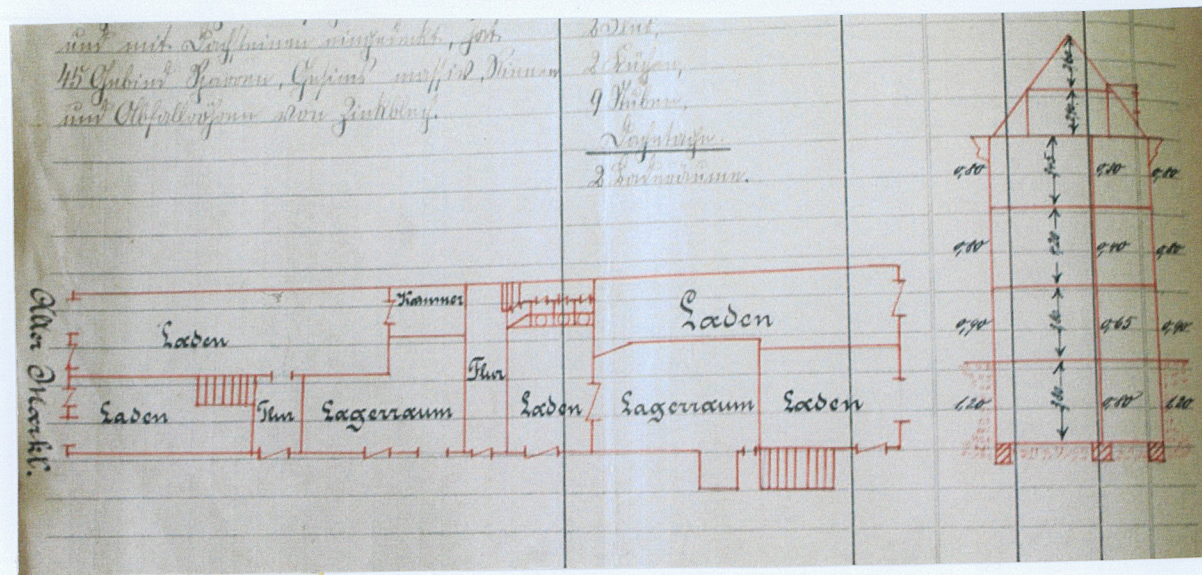 und mit Dachsteinen eingedeckt, hat
45 Gebind Sparren, Gesims massiv, Rinnen
und Abfallröhren von Zinkblech.
2 Küchen,
9 Stuben,
Dachetage
2 Bodenräume.
Alter Markt.
Laden
Kammer
Laden
Flur
Lagerraum
Flur
Laden
Laden
Lagerraum
Laden
0,80
0,80
0,80
0,80
0,90
0,65
0,90
1,20
0,80
1,20